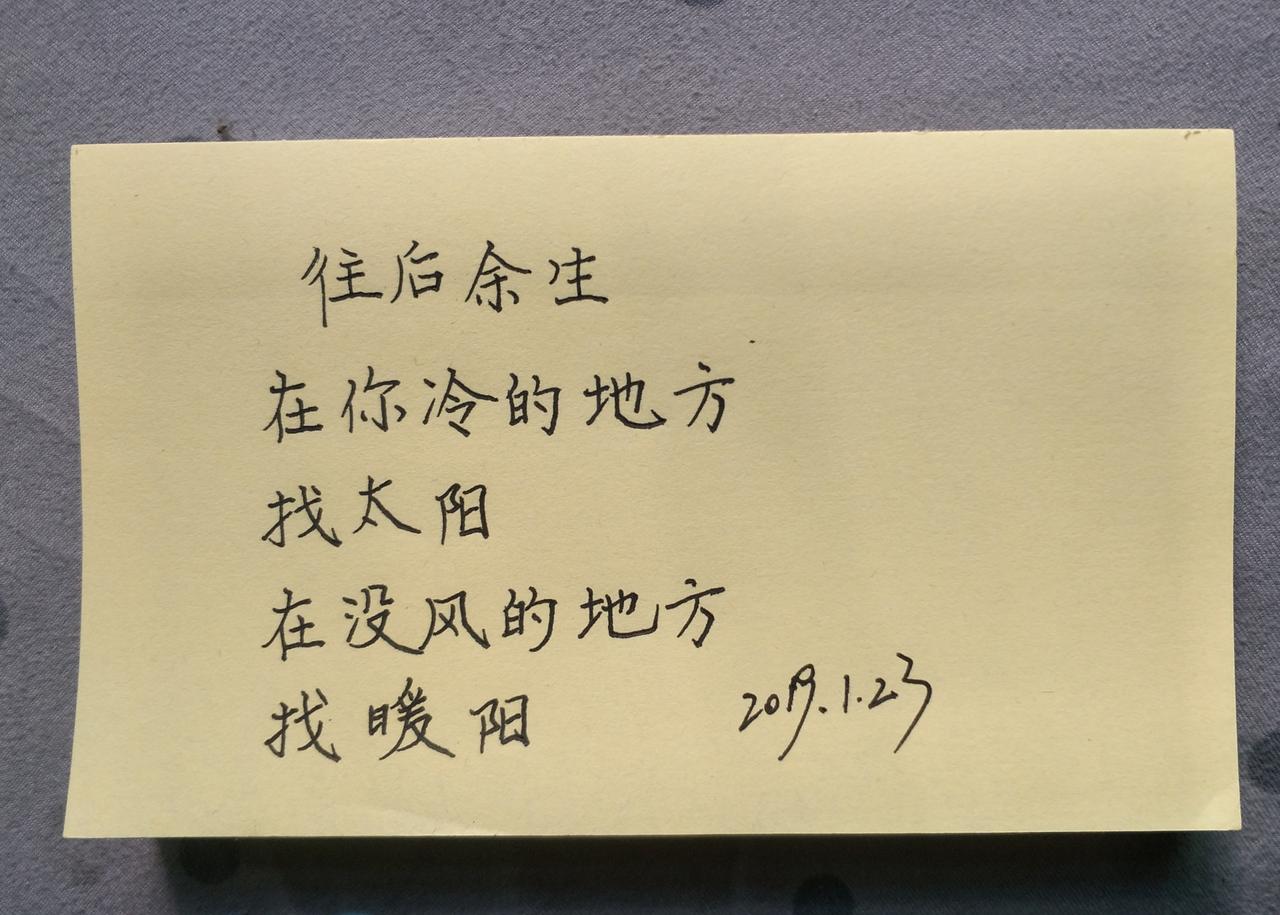 往后余生
在你冷的地方
找太阳
在没风的地方
找暖阳
2019.1.23